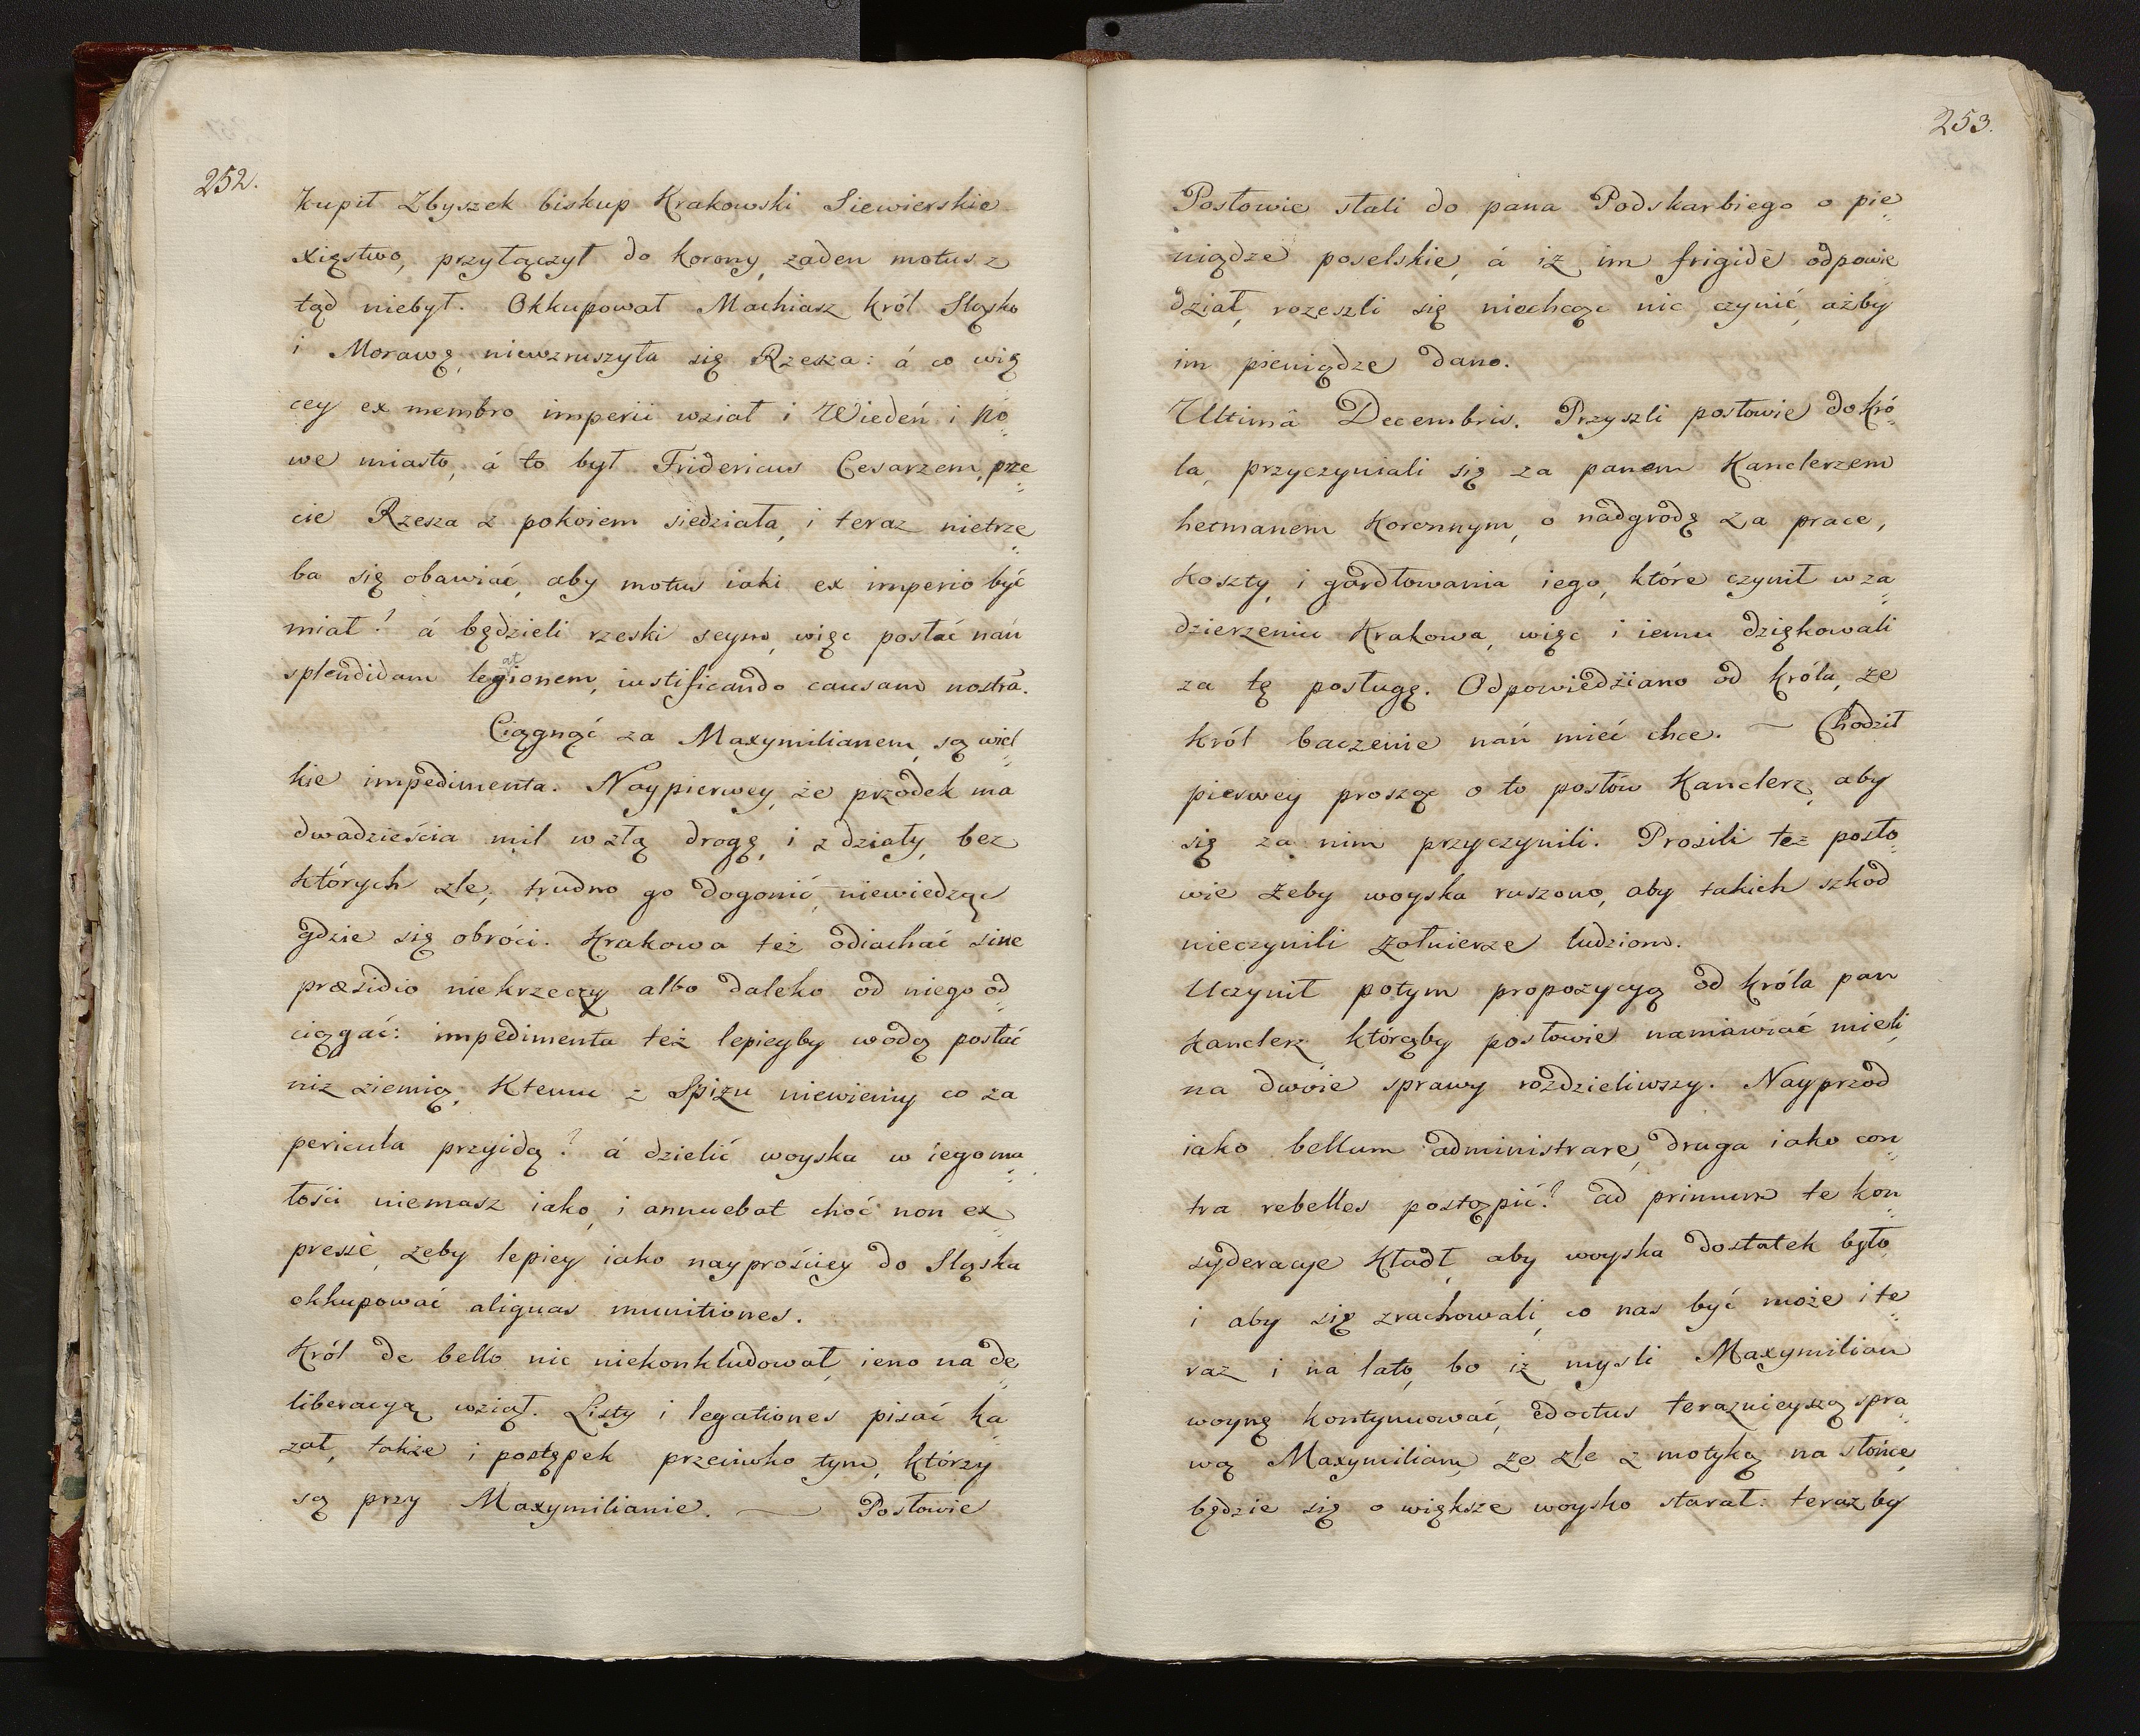 252.
kupił Zbyszek biskup Krakowski Siewierskie
xięstwo, przyłączył do korony, zaden motus z
tąd niebył. Okkupował Machiasz król Sląsko
i Morawę, niewzruszyła się Rzesza: á co wię
cey ex membro imperii wziął i Wiedeń i No„
we miasto, á to był Fridericus Cesarzem, prze„
cie Rzesza z pokoiem siedziała, i teraz nietrze„
ba się obawiać, aby motus iaki ex imperio być
miał? á będzieli rzeski seym, więc posłać nań
splendidam legationem, iustificando causam nostrã.
Ciągnąć za Maxymilianem, są wiel„
kie impedimenta. Naypierwey, że przodek ma
dwadzieścia mil w złą drogę, i z działy, bez
których zle; trudno go dogonić, niewiedząc
gdzie się obróci. Krakowa też odiachać sine
præsidio niekrzeczy albo daleko od niego od„
ciągać: impedimenta też lepieyby wodą posłać
niz ziemią. Ktemu z Spizu niewiemy co za
pericula przyidą? á dzielić woyska w iego ma„
łości niemasz iako, i annuebat choć non ex„
pressè, zeby lepiey iako nayprościey do Sląska
okkupować aliquas munitiones.
Król de bello nic niekonkludował, ieno na de„
liberacyą wziął. Listy i legationes pisać ka„
zał, także i postępek przeciwko tym, którzy
są przy Maxymilianie. — Posłowie
253.
Posłowie słali do pana Podskarbiego o pie„
niądze poselskie, á iż im frigidè odpowie„
dział, rozeszli się niechcąc nic czynić, ażby
im pieniądze dano.
Ultimâ Decembris. Przyszli posłowie do kró„
la, przyczyniali się za panem Kanclerzem
hetmanem Koronnym, o nadgrodę za prace,
koszty, i gardłowania iego, które czynił w za„
dzierzeniu Krakowa, więc i iemu dziękowali
za tę posługę. Odpowiedziano od króla, że
król baczenie nań mieć chce. — Chodził
pierwey prosząc o to posłów Kanclerz, aby
się za nim przyczynili. Prosili też posło„
wie żeby woyska ruszono, aby takich szkod
nieczynili żołnierze ludziom.
Uczynił potym propozycyą od króla pan
kanclerz, którąby posłowie namawiać mieli,
na dwoie sprawy rozdzieliwszy. Nayprzod
iako bellum administrare, druga iako con„
tra rebelles postąpić? ad primum te kon„
syderacye kładł, aby woyska dostatek było,
i aby się zrachowali, co nas być może i te„
raz i na lato, bo iż mysli Maxymilian
woynę kontynuować, edoctus teraznieyszą spra„
wą Maxymilian, że zle z motyką na słońce,
będzie się o większe woysko starał: teraz by